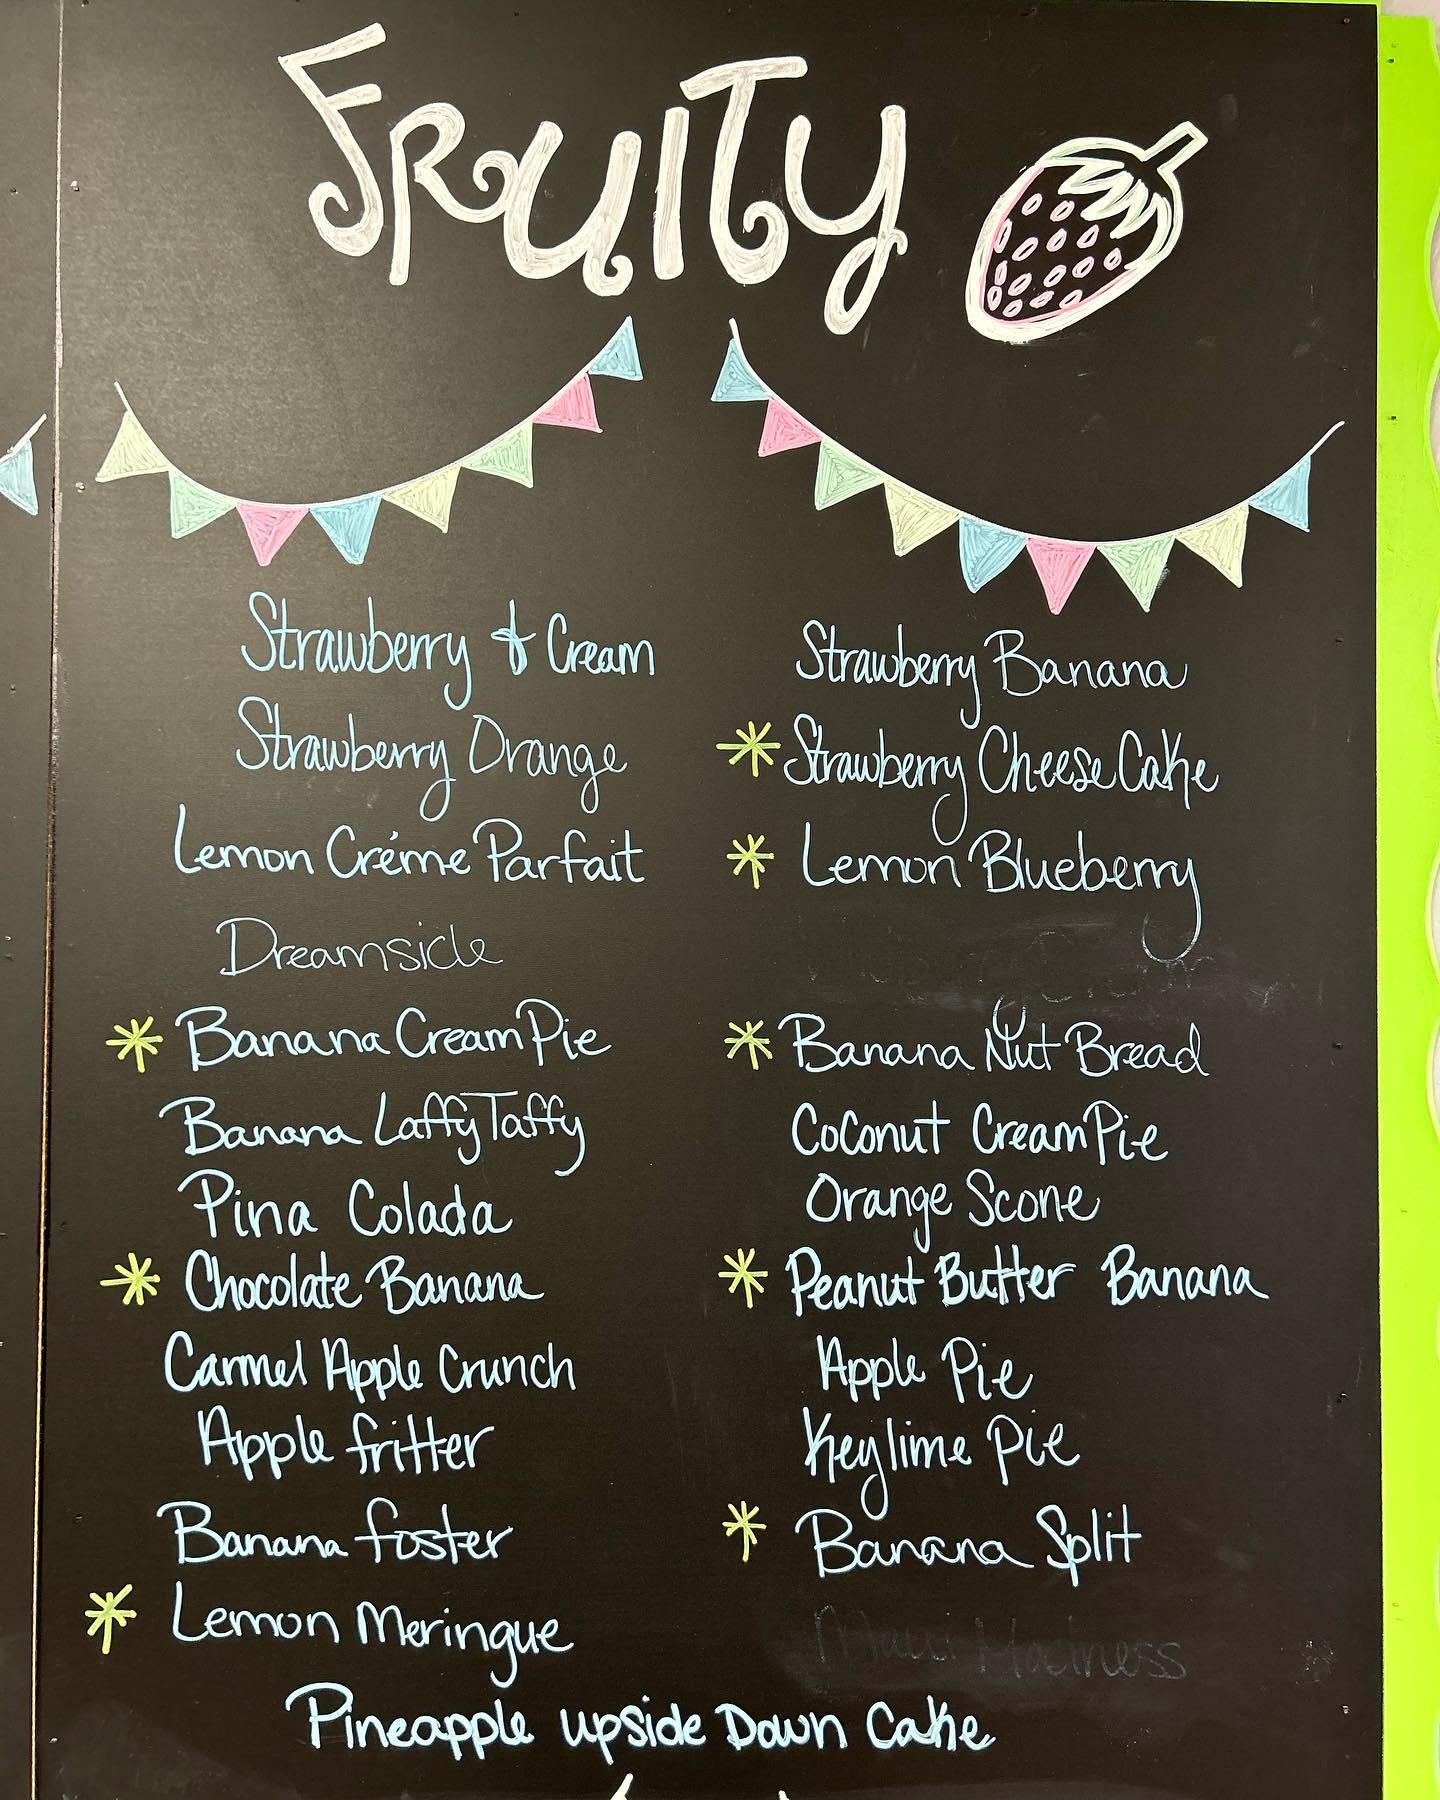 Fruity
Strawberry & Cream
Strawberry Orange
Lemon Créme Parfait
Dreamsicle
* Banana Cream Pie
Banana Laffy Taffy
Pina Colada
* Chocolate Banana
Carmel Apple Crunch
Apple fritter
Banana foster
* Lemon Meringue
Strawberry Banana
* Strawberry CheeseCake
* Lemon Blueberry
* Banana Nut Bread
Coconut Cream Pie
Orange Scone
* Peanut Butter Banana
Apple Pie
Keylime Pie
* Banana Split
Maui Madness
Pineapple upside Down Cake